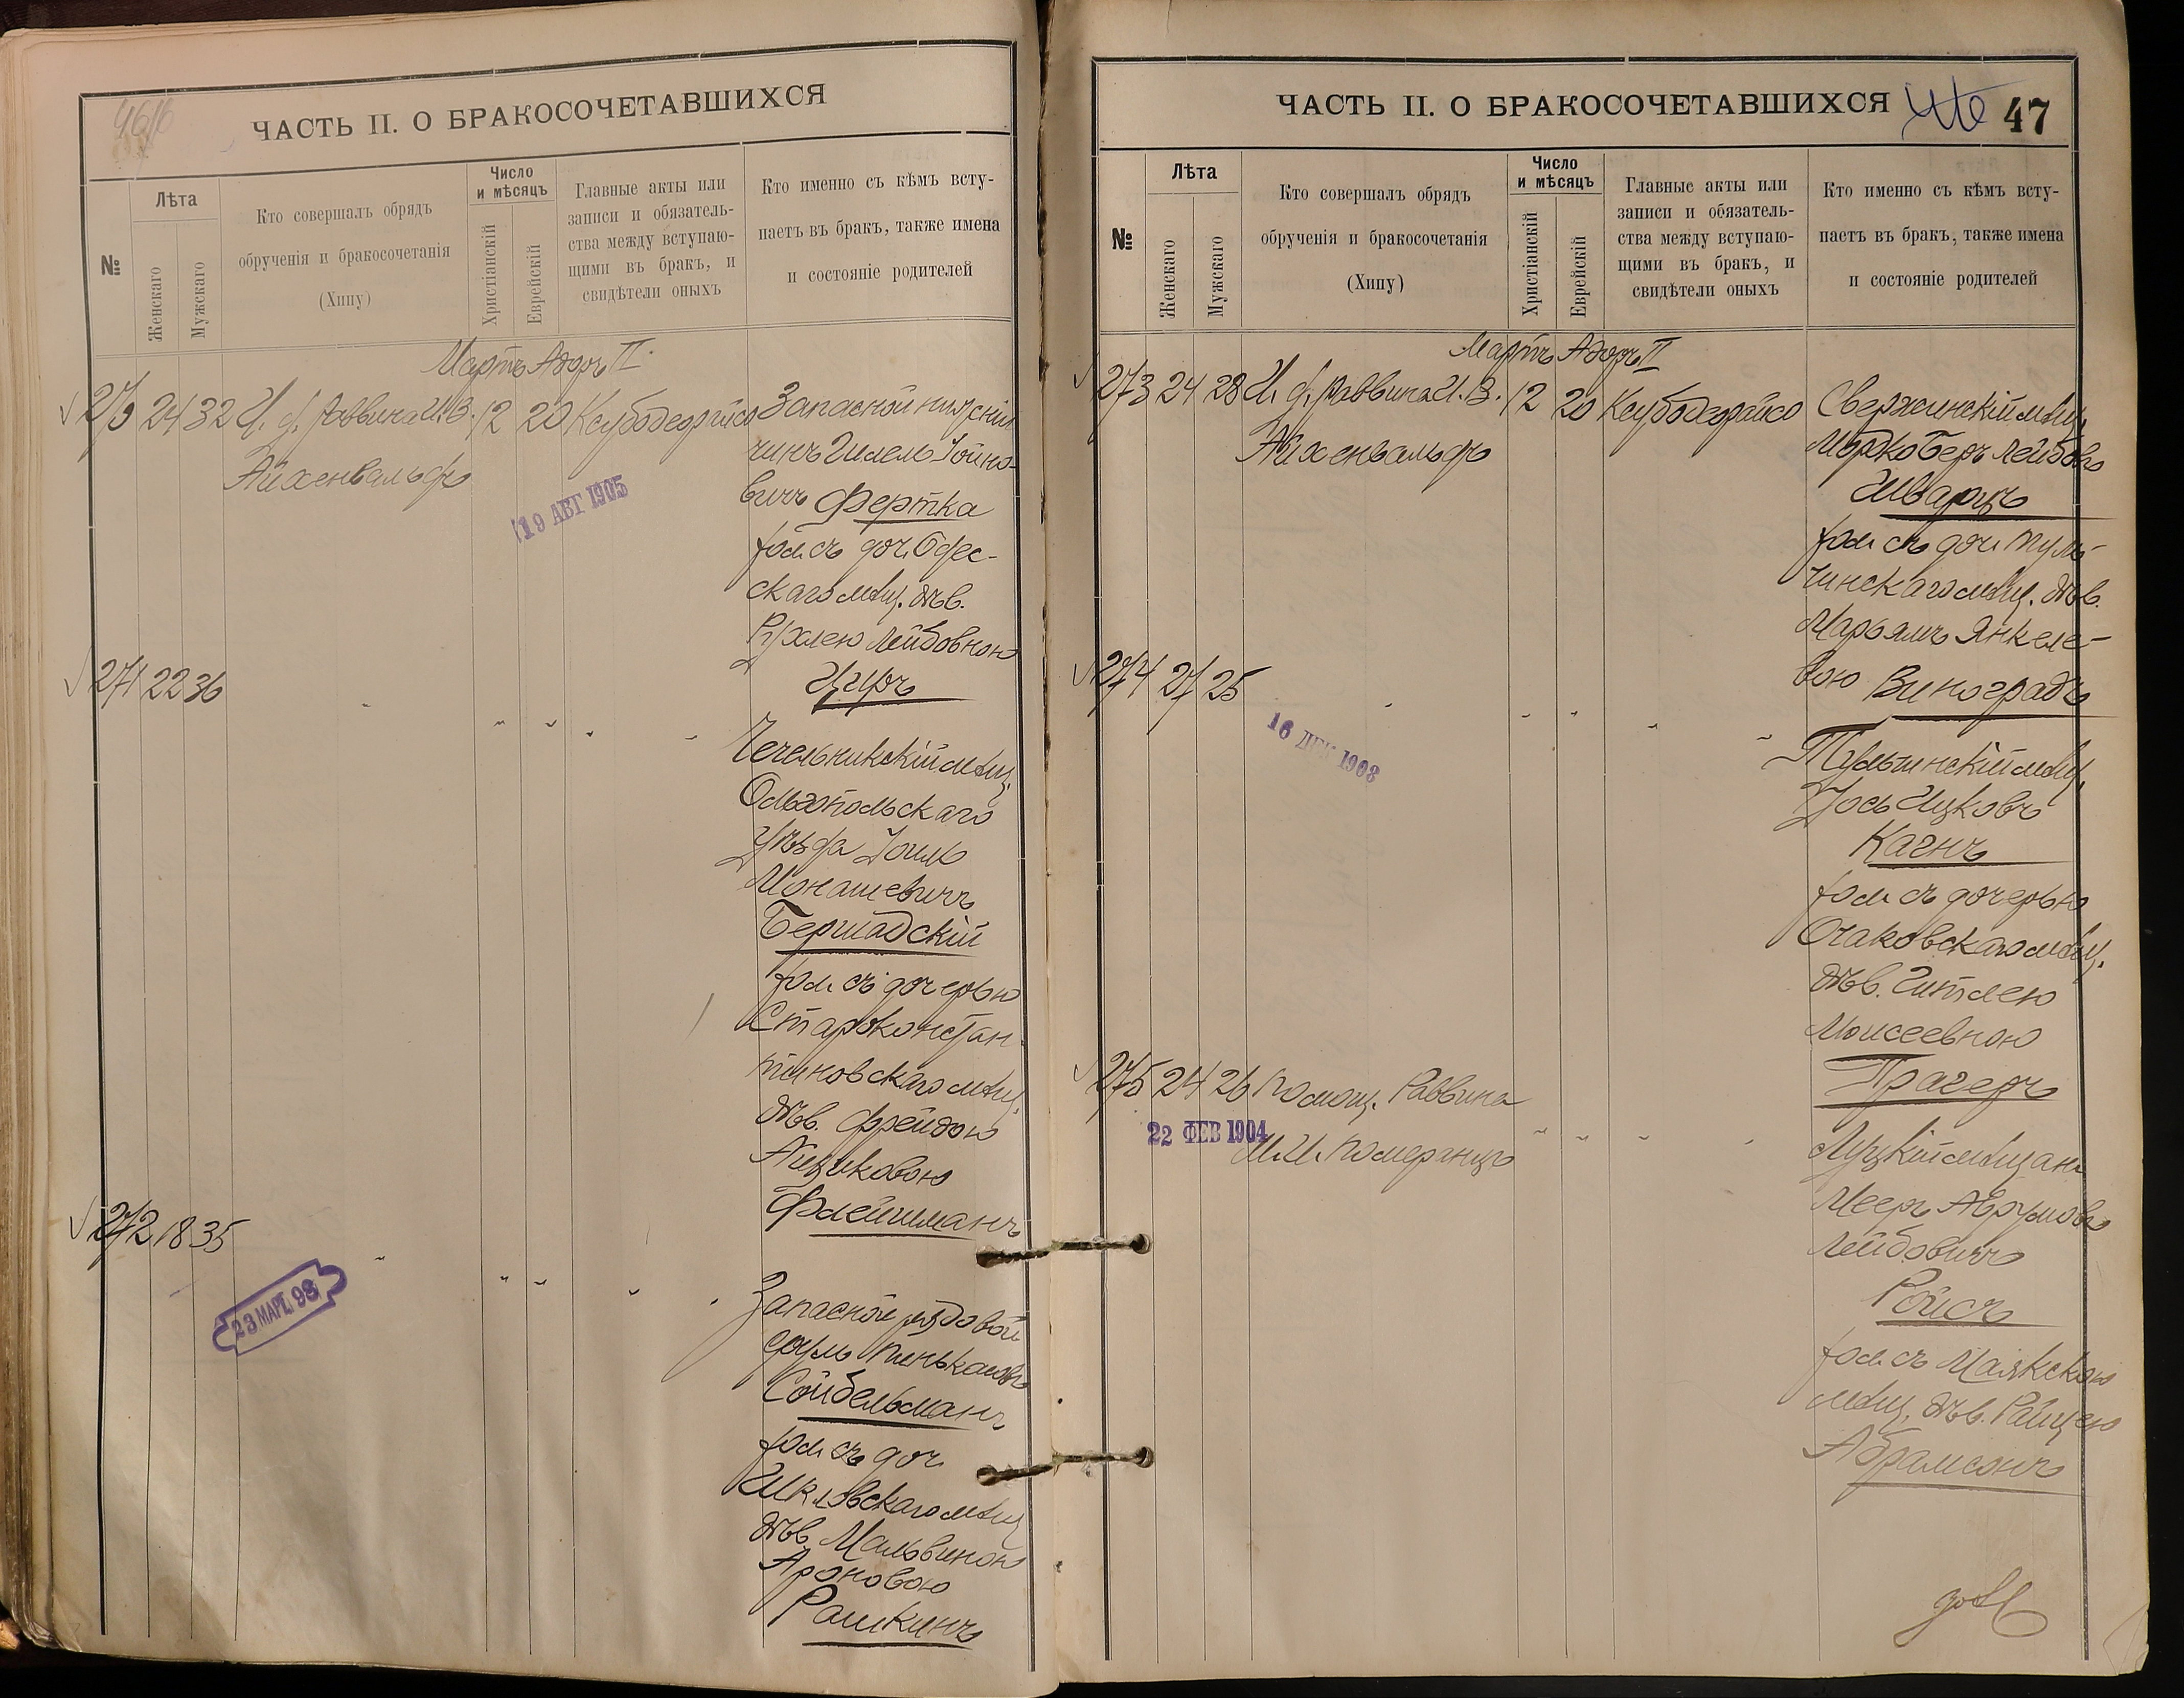 ЧАСТЬ II. О БРАКОСОЧЕТАВШИХСЯ
№
Лѣта
Женскаго
Мужскаго
Кто совершалъ обрядъ
обрученія и бракосочетанія
(Хипу)
Число
и мѣсяцъ
Христіанскій
Еврейскій
Главные акты или
записи и обязатель-
ства между вступаю-
щими въ бракъ, и
свидѣтели оныхъ
Кто именно съ кѣмъ всту-
паетъ въ бракъ, также имена
и состояніе родителей
Мартъ Адоръ II
270 24 32 И. д. Раввина И. В. 12 20
Айхенвальдъ
19 АВГ 1905
Запасной нижній
чинъ Гилель Іойно-
вичъ Фертка
съ доч. Одес-
скаго мѣщ. дѣв.
Рухлею Лейбовною
Цуръ
271 22 36
Чечельникскій мѣщ.
Ольгопольскаго
уѣзда Іоиль
Монашевичъ
Бершадскій
съ дочерью
Староконстан-
тиновскаго мѣщ.
дѣв. Фрейдою
Айзиковою
Флейшманъ
272 18 35
23 МАРТ. 98
Запасной рядовой
Сруль Пиньхасовъ
Сойбельманъ
съ доч.
Шкловскаго мѣщ.
дѣв. Мальвиною
Ароновою
Рашкинъ
ЧАСТЬ II. О БРАКОСОЧЕТАВШИХСЯ
47
№
Лѣта
Женскаго
Мужскаго
Кто совершалъ обрядъ
обрученія и бракосочетанія
(Хипу)
Число
и мѣсяцъ
Христіанскій
Еврейскій
Главные акты или
записи и обязатель-
ства между вступаю-
щими въ бракъ, и
свидѣтели оныхъ
Кто именно съ кѣмъ всту-
паетъ въ бракъ, также имена
и состояніе родителей
Мартъ Адоръ II
273 24 28 И. д. Раввина И. В. 12 20
Айхенвальдъ
мѣщ.
Мордко Беръ Лейбовъ
Шварцъ
съ доч. Туль-
чинскаго мѣщ. дѣв.
Марьямъ Янкеле-
вою Виноградъ
274 21 25
16 ДЕК 1903
Тульчинскій мѣщ.
Іось Ицковъ
Каганъ
съ дочерью
Очаковскаго мѣщ.
дѣв. Гитлею
Моисеевною
Прагеръ
275 24 26 Помощ. Раввина
М. И. Померанцъ
22 ФЕВ 1904
Луцкій мѣщан.
Мееръ Аврумовъ
Лейбовичъ
Ройсъ
съ Маякскою
мѣщ. дѣв. Райцею
Абрамсонъ